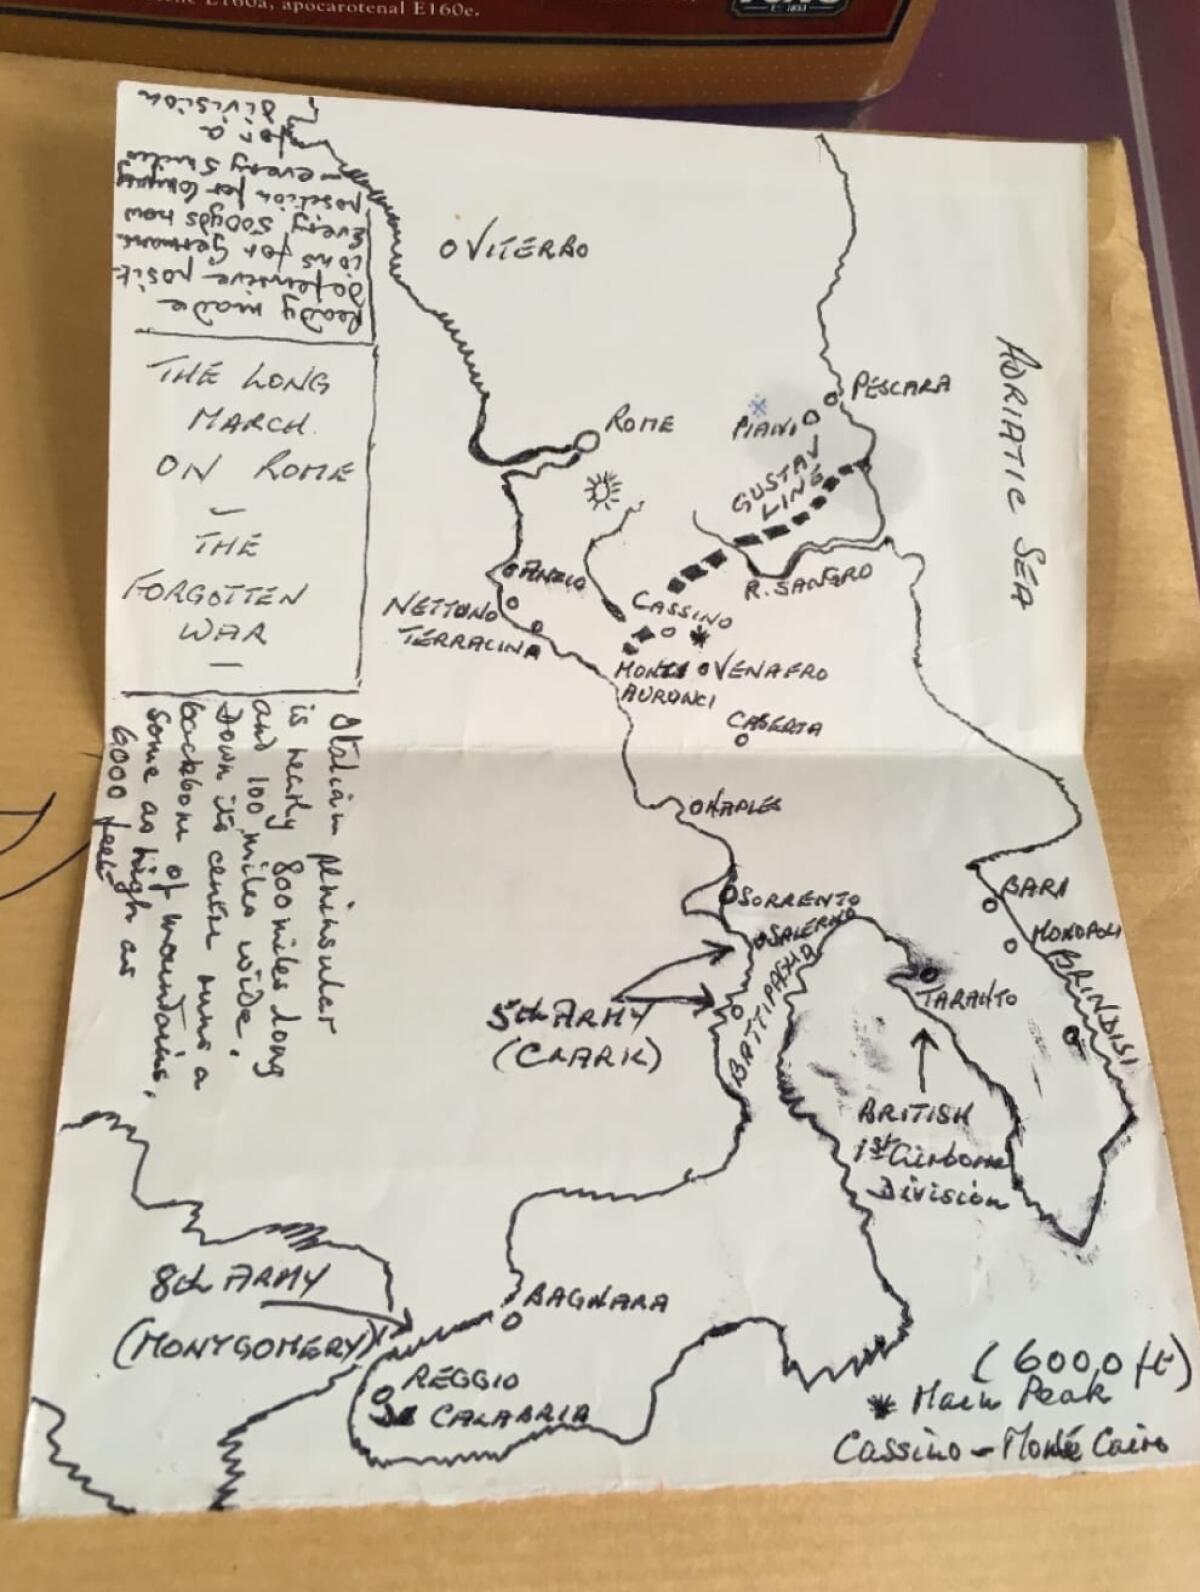 E160a, apocarotenal E160e.
EST. 1833
Ready made
defensive posit-
ions for Germans
every 500yds now
position for
every 5 miles
for a
division
THE LONG
MARCH
ON ROME
–
THE
FORGOTTEN
WAR
–
Italian peninsular
is nearly 800 miles long
and 100 miles wide.
Down its centre runs a
backbone of mountains,
some as high as
6000 feet
VITERBO
ADRIATIC SEA
PESCARA
PIANI
ROME
GUSTAV
LINE
R. SANGRO
ANZIO
NETTUNO
TERRACINA
CASSINO
MONTI
AURUNCI
VENAFRO
CASERTA
NAPLES
SORRENTO
SALERNO
BATTIPAGLIA
BARI
MONOPOLI
BRINDISI
TARANTO
5th ARMY
(CLARK)
BRITISH
1st Airborne
Division
8th ARMY
(MONYGOMERY)
BAGNARA
REGGIO
DE CALABRIA
(6000 ft)
Main Peak
Cassino – Monte Cairo